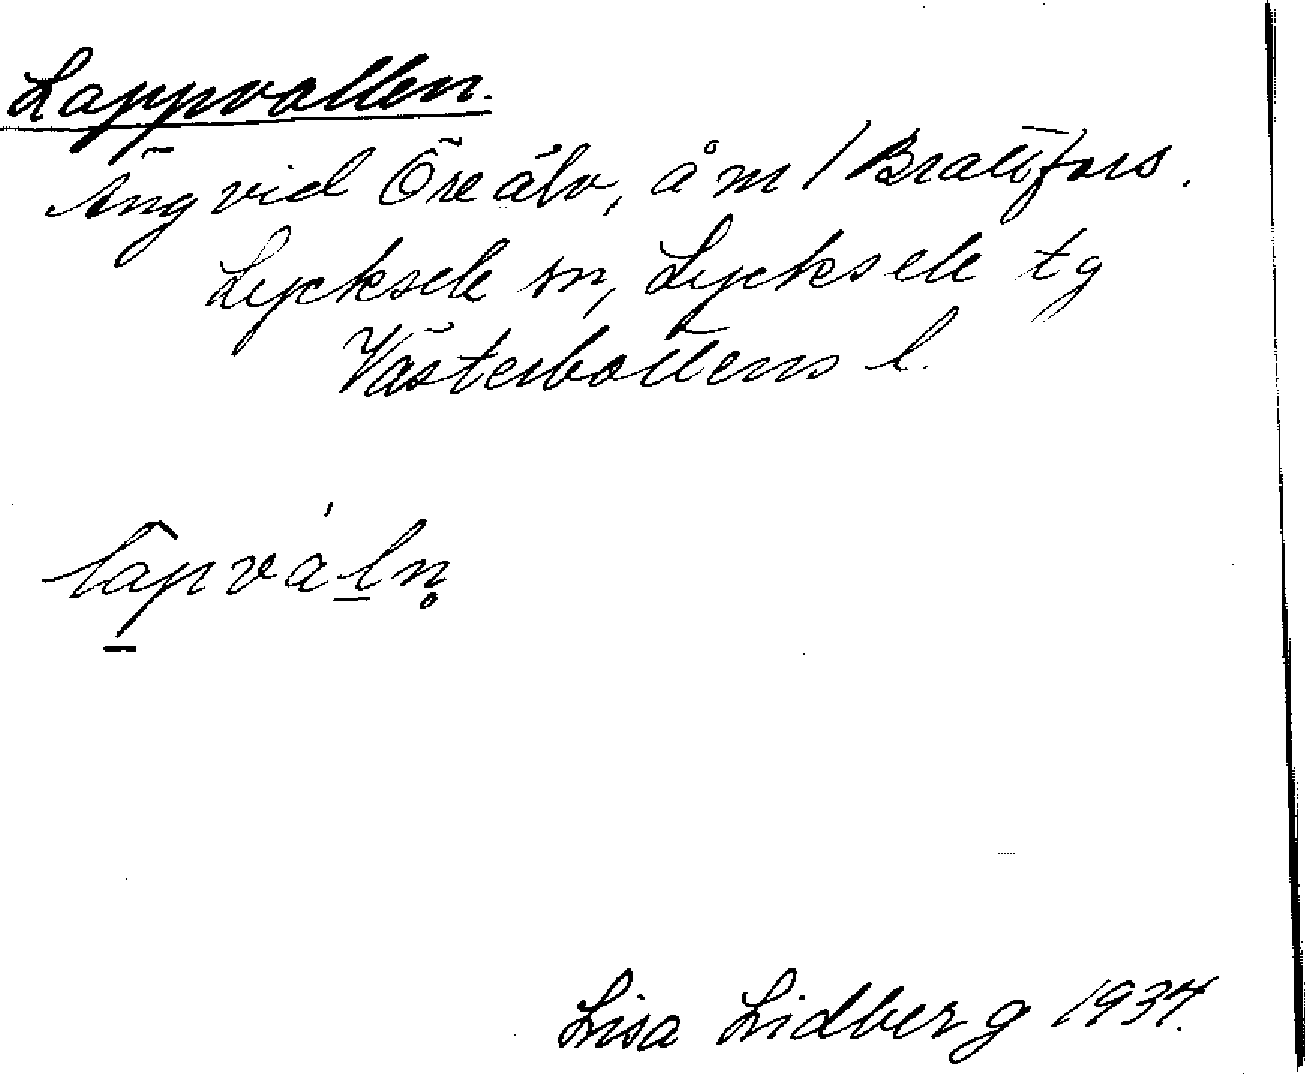 Lappvallen.
Äng vid Öre älv, å m / Brattfors.
Lycksele sn, Lycksele tg
Västerbottens l.
lapvàln̥
Lisa Lidberg 1934.